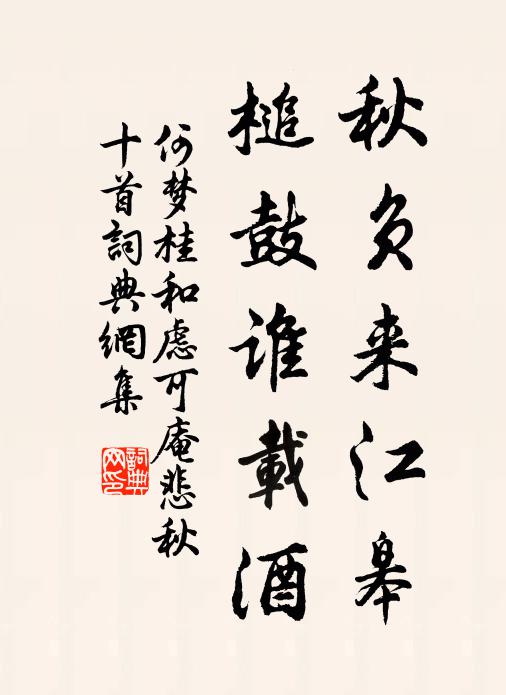 秋負来江皋
槌鼓谁載酒
何梦桂和慮可庵悲秋
十首詞典網集
詞典网印